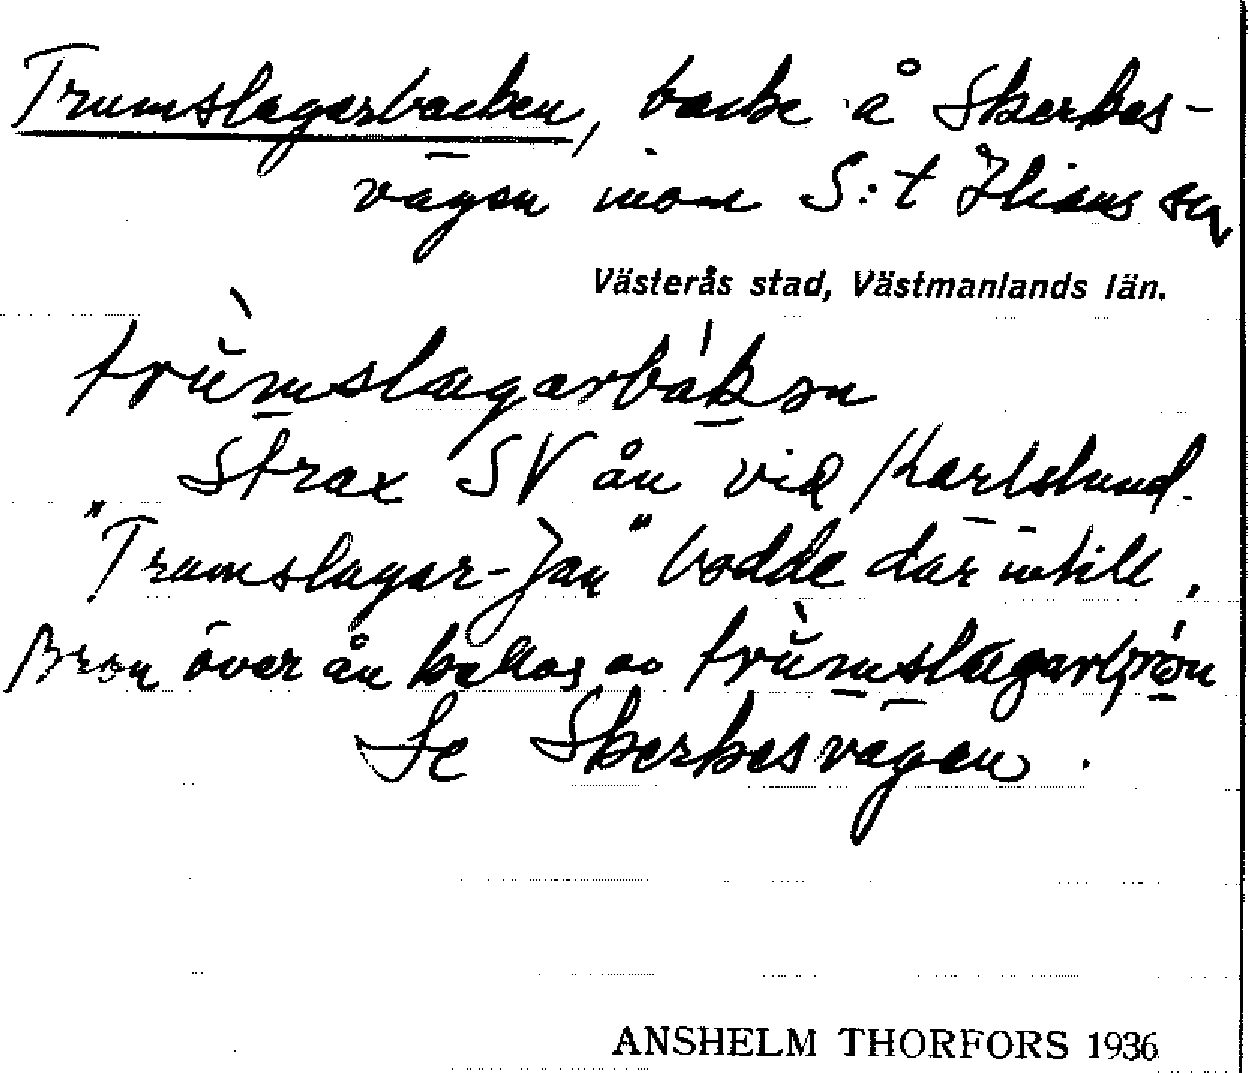 Trumslagarbacken, backe å Skerkes-
vägen inom S:t Ilians sn
Västerås stad, Västmanlands län.
trùmslagarbákən
Strax SV ån vid Karlslund.
"Trumslagar-Jan" bodde där intill.
Bron över ån kallas av trùmslagarbrón
Se Skerkesvägen.
ANSHELM THORFORS 1936